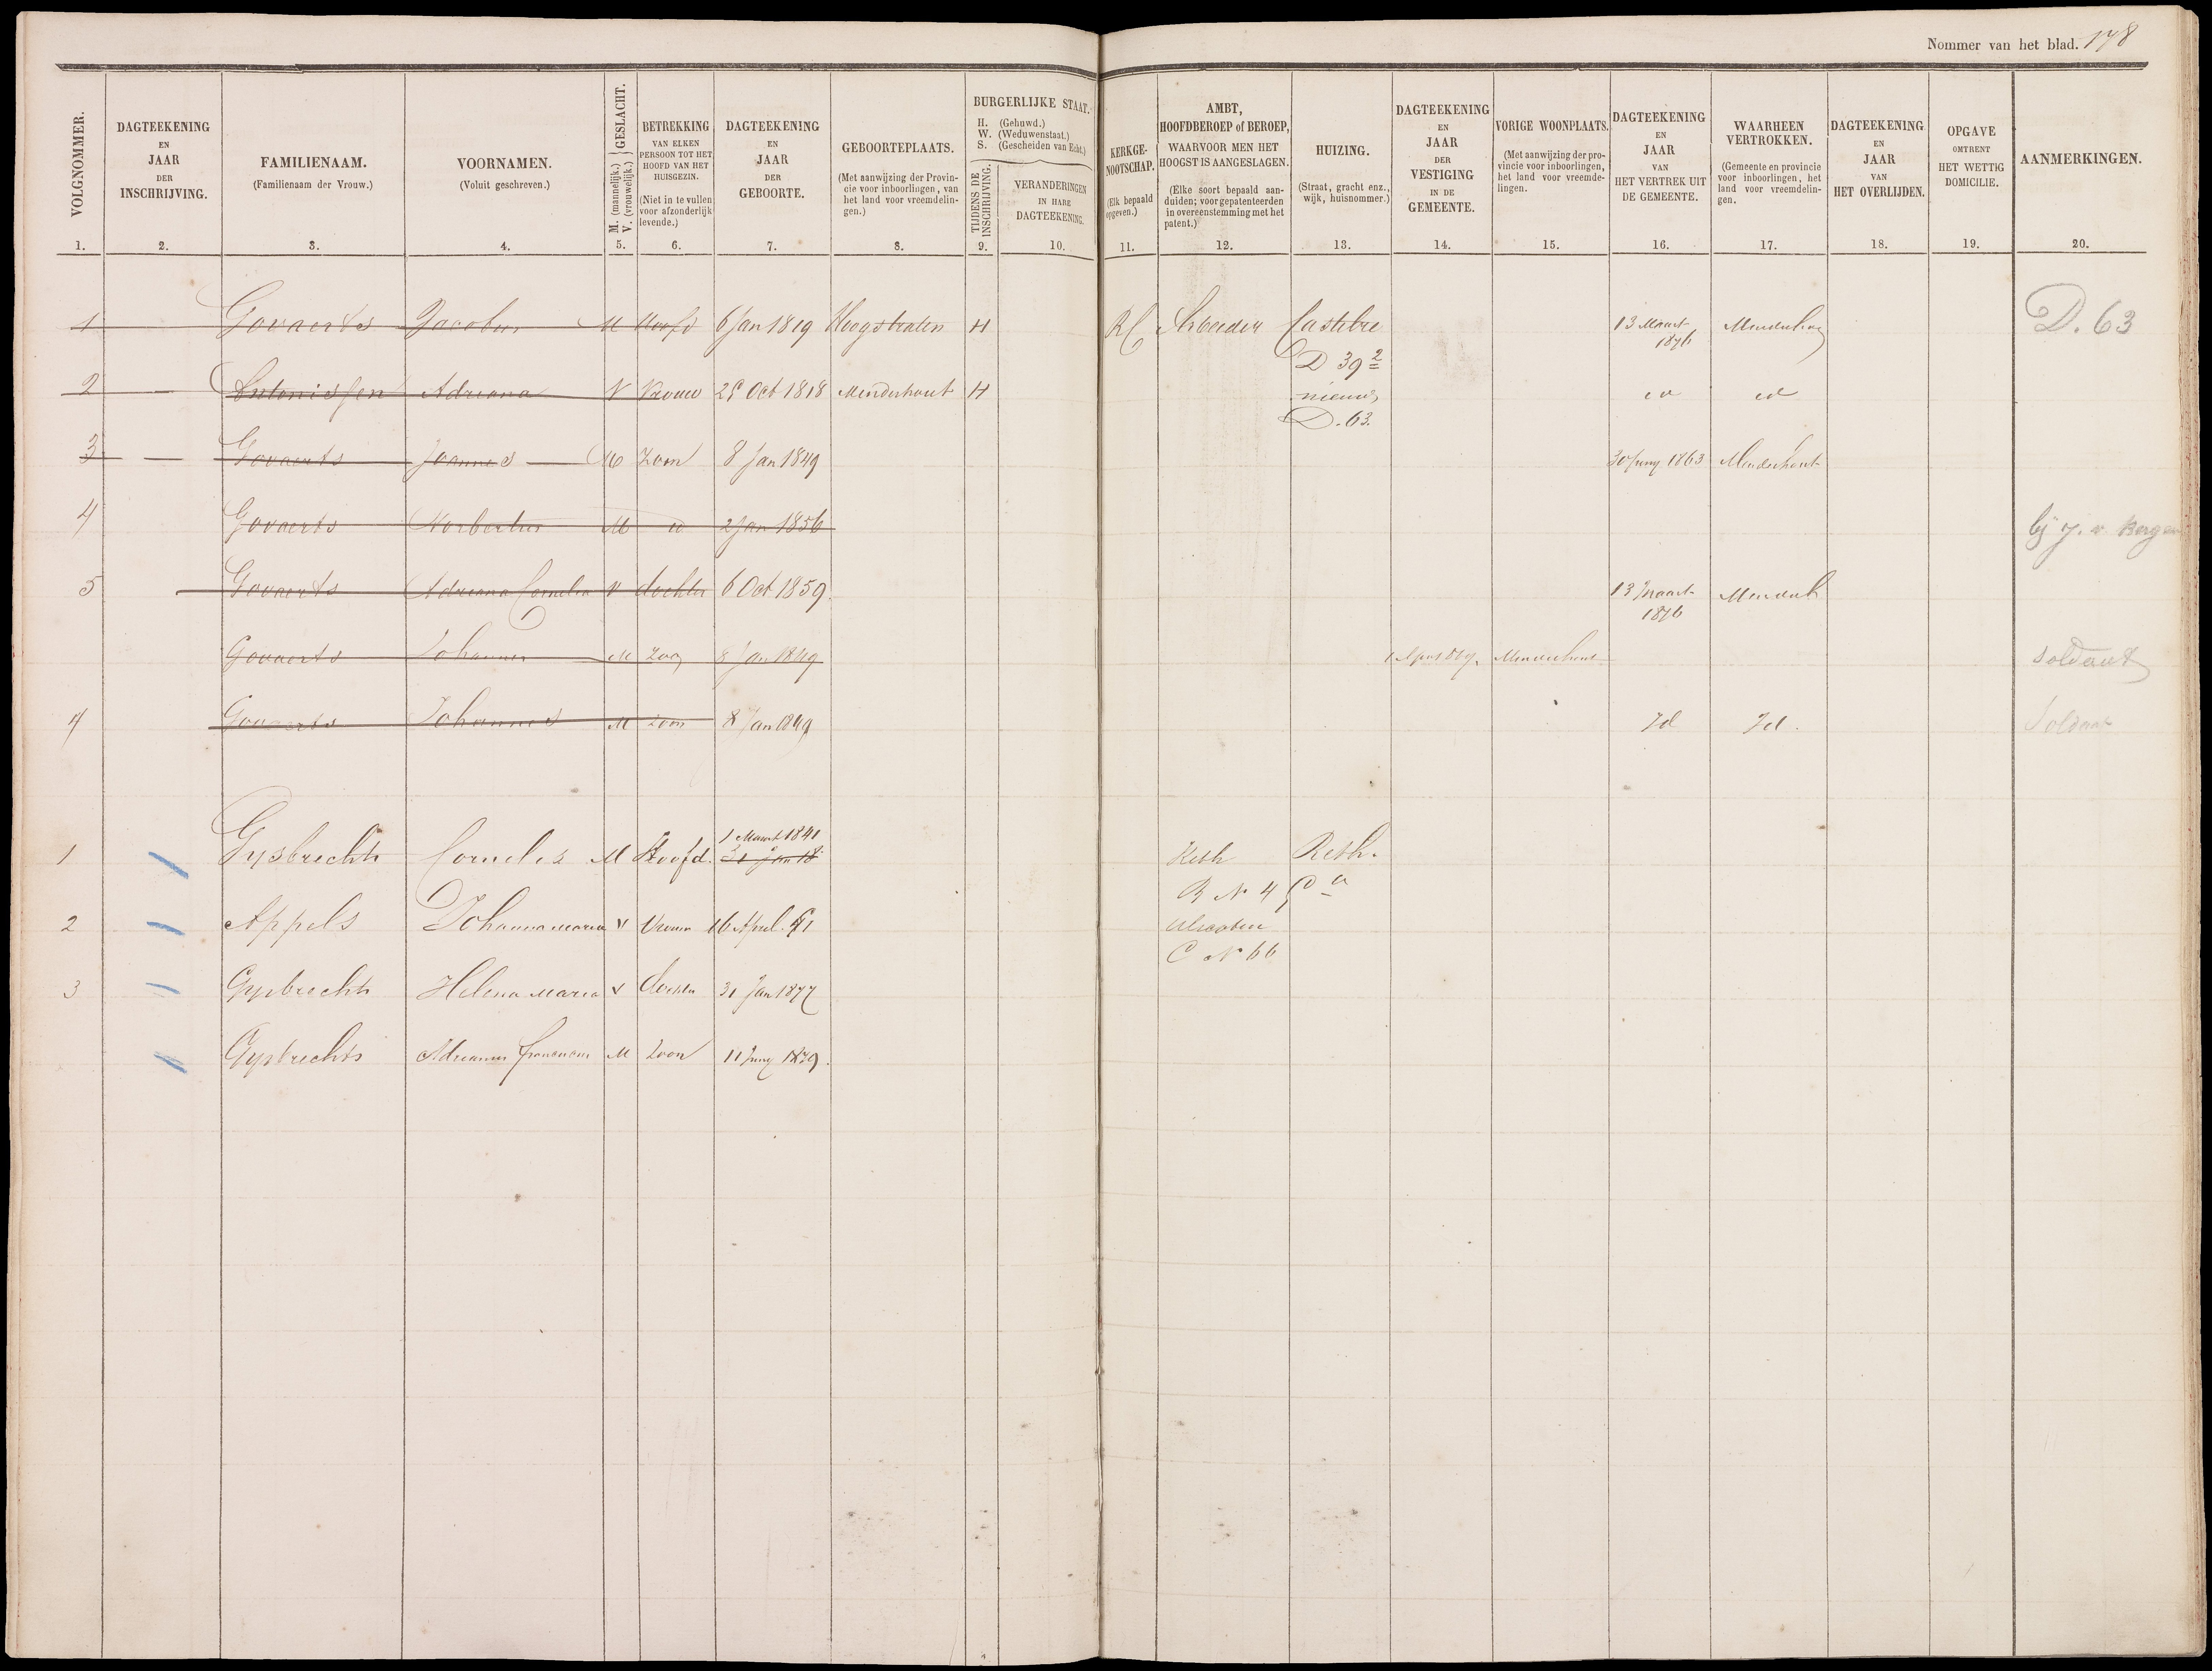 Nommer van het blad. 178
VOLGNOMMER.
1.
DAGTEEKENING
EN
JAAR
DER
INSCHRIJVING.
2.
FAMILIENAAM.
(Familienaam der Vrouw.)
3.
VOORNAMEN.
(Voluit geschreven.)
4.
GESLACHT.
M. (mannelijk.)
V. (vrouwelijk.)
5.
BETREKKING
VAN ELKEN
PERSOON TOT HET
HOOFD VAN HET
HUISGEZIN.
(Niet in te vullen
voor afzonderlijk
levende.)
6.
DAGTEEKENING
EN
JAAR
DER
GEBOORTE.
7.
GEBOORTEPLAATS.
(Met aanwijzing der Provin-
cie voor inboorlingen, van
het land voor vreemdelin-
gen.)
8.
BURGERLIJKE STAAT.
H. (Gehuwd.)
W. (Weduwenstaat.)
S. (Gescheiden van Echt.)
TIJDENS DE
INSCHRIJVING.
9.
VERANDERINGEN
IN HARE
DAGTEEKENING.
10.
KERKGE-
NOOTSCHAP.
(Elk bepaald
opgeven.)
11.
AMBT,
HOOFDBEROEP of BEROEP,
WAARVOOR MEN HET
HOOGST IS AANGESLAGEN.
(Elke soort bepaald aan-
duiden; voor gepatenteerden
in overeenstemming met het
patent.)
12.
HUIZING.
(Straat, gracht enz.,
wijk, huisnommer.)
13.
DAGTEEKENING
EN
JAAR
DER
VESTIGING
IN DE
GEMEENTE.
14.
VORIGE WOONPLAATS.
(Met aanwijzing der pro-
vincie voor inboorlingen,
het land voor vreemde-
lingen.
15.
DAGTEEKENING
EN
JAAR
VAN
HET VERTREK UIT
DE GEMEENTE.
16.
WAARHEEN
VERTROKKEN.
(Gemeente en provincie
voor inboorlingen, het
land voor vreemdelin-
gen.
17.
DAGTEEKENING
EN
JAAR
VAN
HET OVERLIJDEN.
18.
OPGAVE
OMTRENT
HET WETTIG
DOMICILIE.
19.
AANMERKINGEN.
20.
1 Govaerts Jacobus M Hoofd 6 Jan 1819 Hoogstraten H RC Arbeider Castelre 13 Maart 1876 D. 63
D 39 2
2 Antonissen Adriana V Vrouw 29 Oct 1818 Minderhout H nieuw id id
D. 63.
3 Govaerts Joannes M Zoon 8 Jan 1849 30 Juny 1863 Minderhout
4 Govaerts Norbertus M id 2 Jan 1856 bij J. v. Bergen
5 Govaerts Adriana Cornelia V dochter 6 Oct 1859. 13 Maart 1876
Govaerts Johannes M Zoon 8 Jan 1849 Minderhout Soldaat
7 Govaerts Johannes M zoon 8 Jan 1849 Id Id. Soldaat
1 Maart 1841
1 Gysbrechts Cornelis M Hoofd. 31 Jan 18 Reth Reth.
B N 4
2 Appels Johanna Maria V Vrouw 16 April 41
C N 66
3 Gysbrechts Helena Maria V dochter 31 Jan 1877
Gysbrechts Adrianus Franciscus M Zoon 11 Juny 1879.